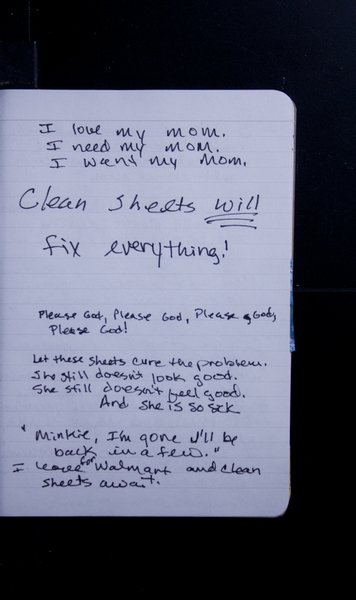 I love my mom.
I need my mom.
I want my mom.
Clean sheets will
fix everything!
Please God, Please God, Please God,
Please God!
Let these sheets cure the problem.
She still doesn't look good.
She still doesn't feel good.
And she is so sick
"Minkie, I'm gone I'll be
back in a few."
I leave for Walmart and clean
sheets await.